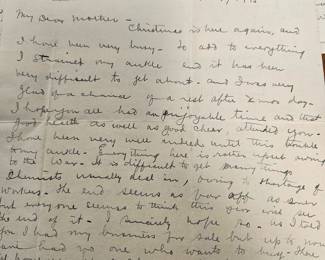 My Dear Mother -
Christmas is here again, and
I have been very busy - to add to everything
I strained my ankle and it has been
very difficult to get about - and I was very
glad of a chance of a rest after Xmas day -
I hope you all had an enjoyable time and that
good health as well as good cheer, attended you -
I have been very well indeed until this trouble
to my ankle - Everything here is rather upset owing
to the War - It is difficult to get many things
Chemists usually deal in, owing to shortage of
workers - The end seems as far off as ever
but everyone seems to think this year will see
the end of it - I sincerely hope so - as I told
you I had my business for sale but up to now
have had no one who wants to buy - Those